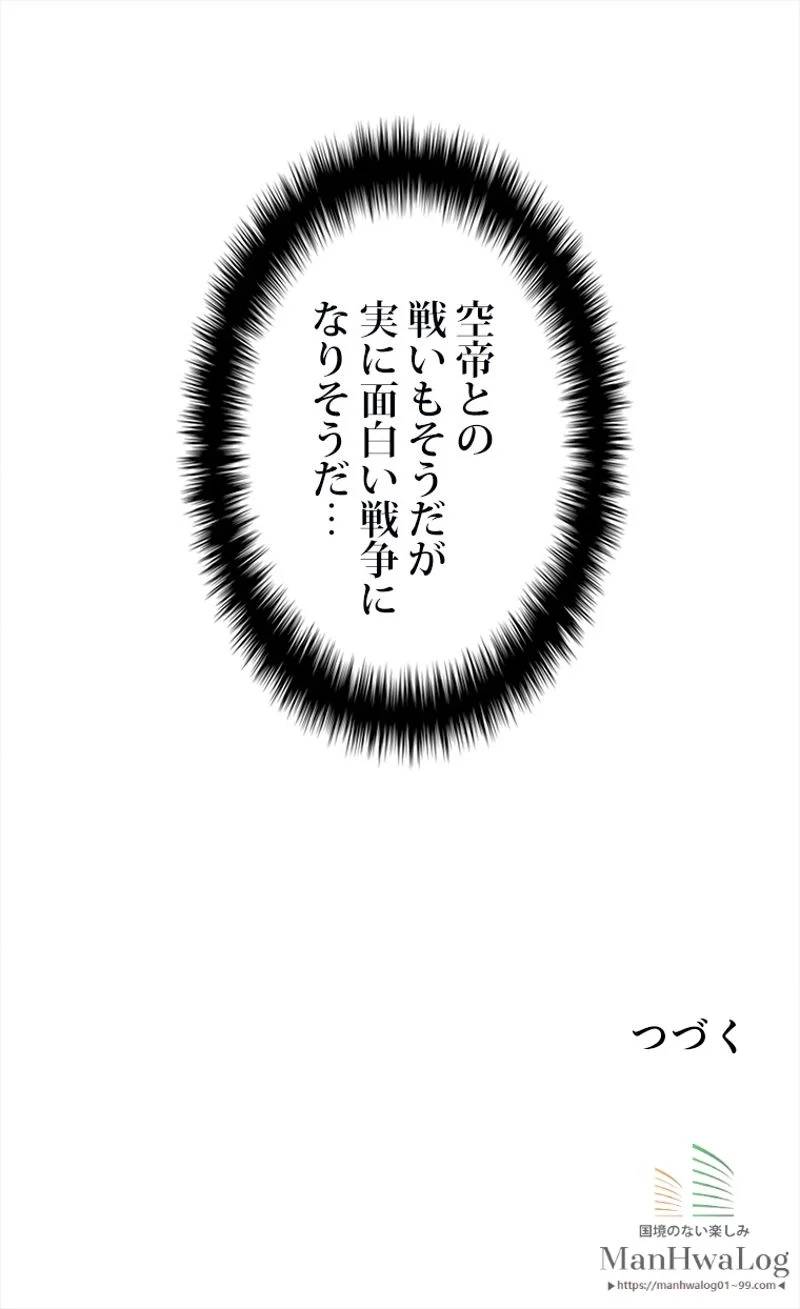 空帝との
戦いもそうだが
実に面白い戦争に
なりそうだ…
つづく
国境のない楽しみ
ManHwaLog
▶https://manhwalog01~99.com◀